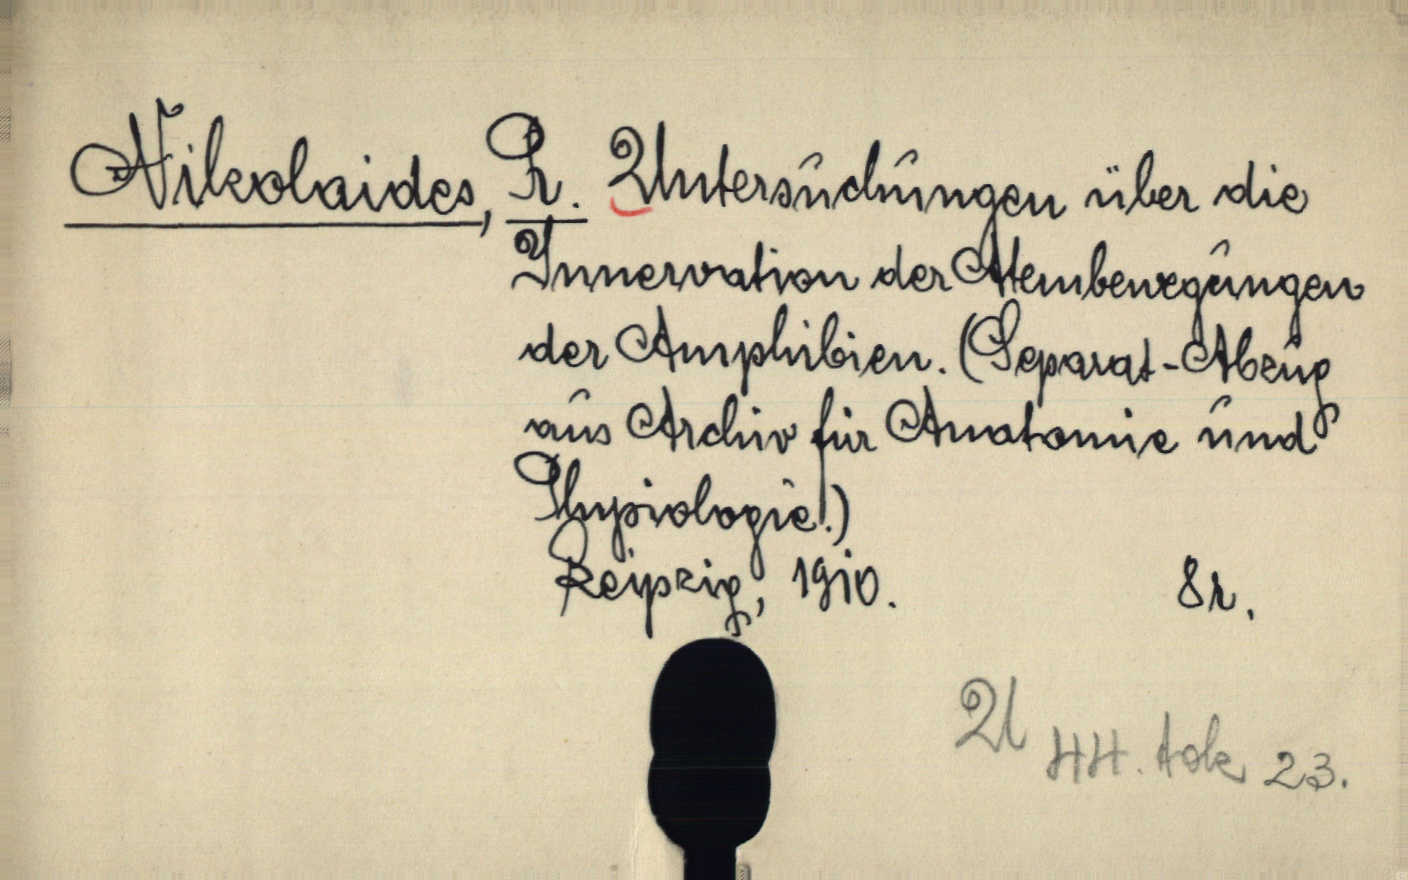 Nikolaides, R. Untersuchungen über die
Innervation der Atembewegungen
der Amphibien. (Separat-Abzug
aus Archiv für Anatomie und
Physiologie.)
Leipzig, 1910. 8r.
U HH. tok 23.